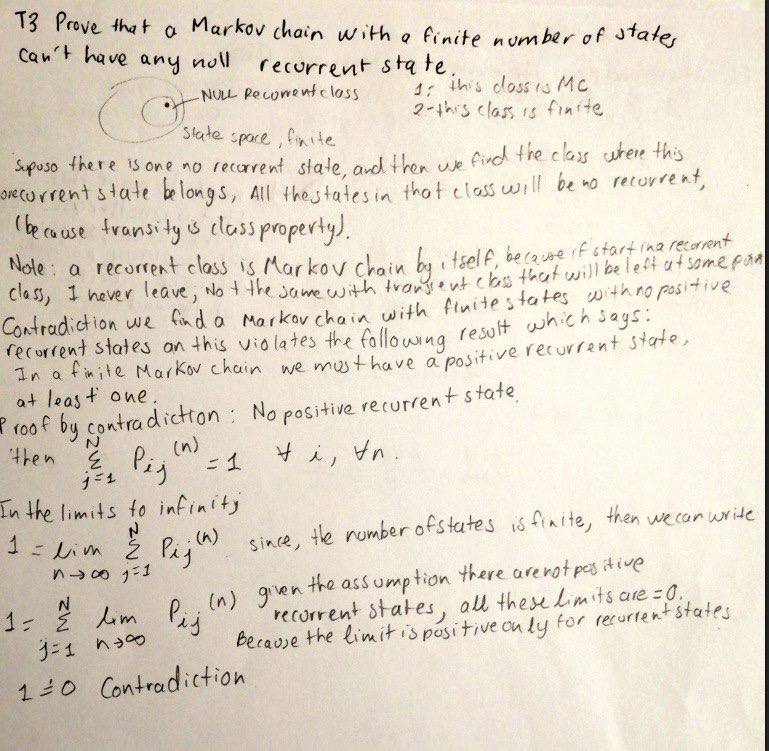 T3 Prove that a Markov chain with a finite number of states
can't have any null recurrent state.
NULL Recorrent class
1: this class is MC
2-this class is finite
State space, finite
Suposo there is one no recorrent state, and then we find the class where this
orecurrent state belongs, All the states in that class will be no recurrent,
(because transity is class property).
Note: a recorrent class is Markov Chain by itself, because if start in a recorrent
class, I never leave, Not the same with transient class that will be left at some point
Contradiction we find a Markov chain with finite states with no positive
recorrent states an this violates the following result which says:
In a finite Markov chain we must have a positive recurrent state,
at least one.
Proof by contradiction: No positive recurrent state.
then N Σ j=1 Pij (n) = 1 ∀ i, ∀n.
In the limits to infinity
1 = lim n→∞ N Σ j=1 Pij (n) since, the number of states is finite, then we can write
1 = N Σ j=1 lim n→∞ Pij (n) given the assumption there are not positive
recorrent states, all these limits are =0.
Because the limit is positive only for recurrent states
1 ≠ 0 Contradiction